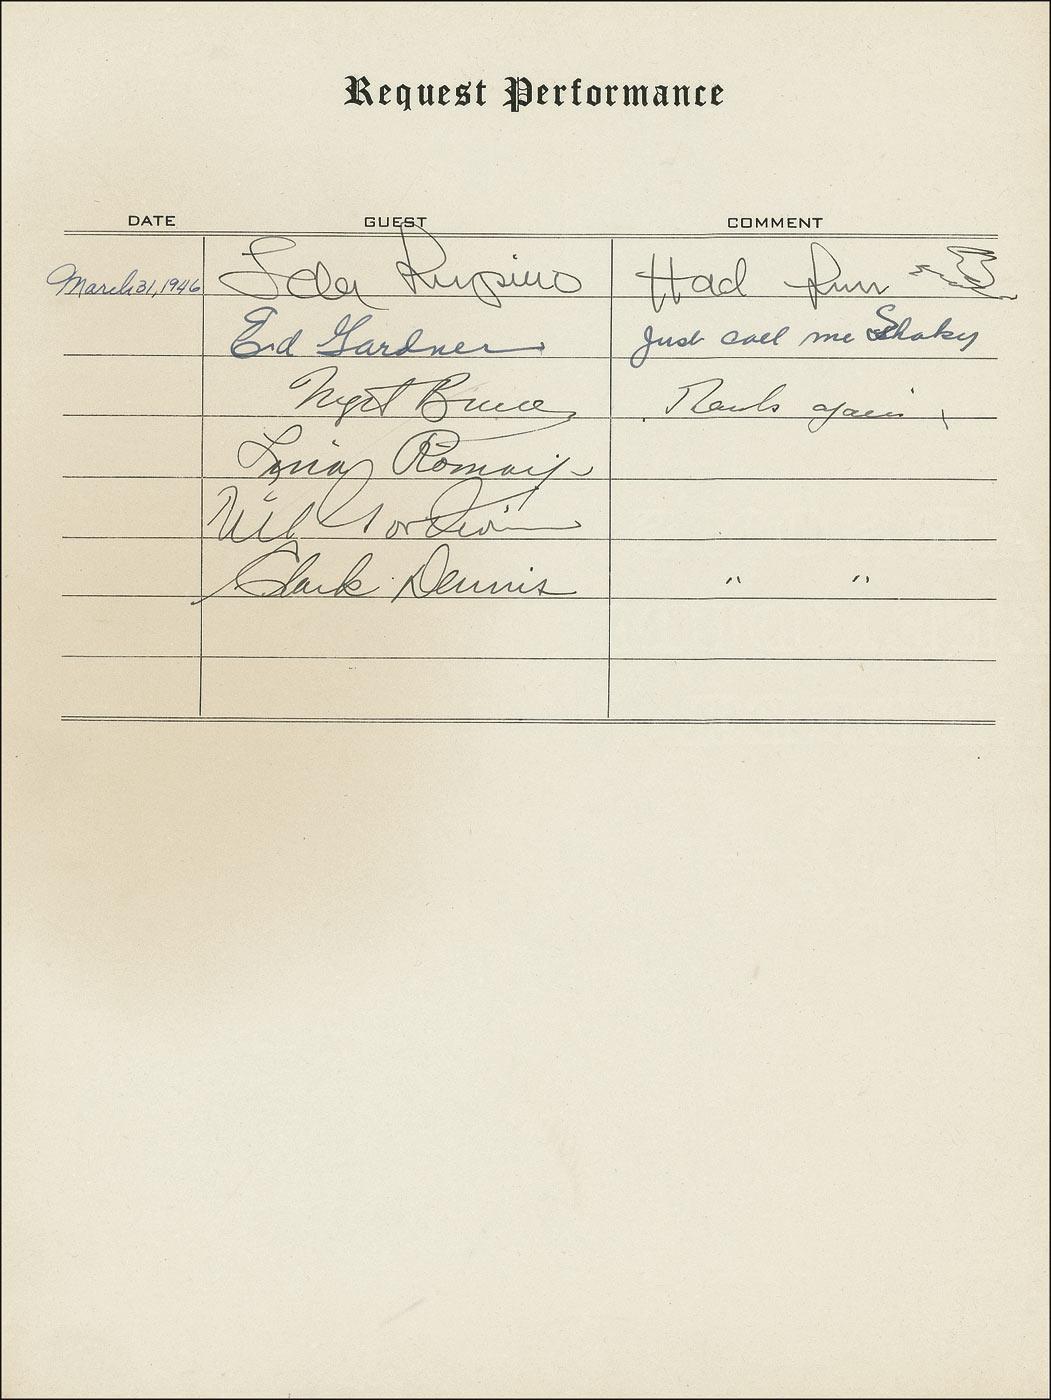 Request Performance
DATE GUEST COMMENT
March 31, 1946 Ida Lupino Had Fun
Ed Gardner Just call me Shaky
Nigel Bruce Thanks again
Romay
Clark Dennis " "